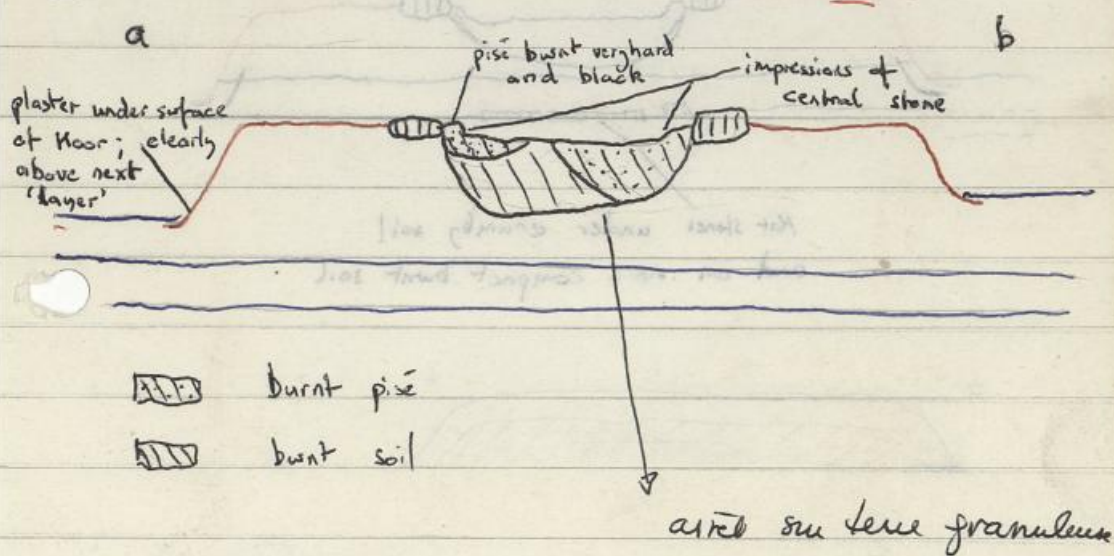 a
b
pisé burnt very hard
and black
impressions of
central stone
plaster under surface
of floor; clearly
above next
'layer'
burnt pisé
burnt soil
arrêt sur terre granuleuse